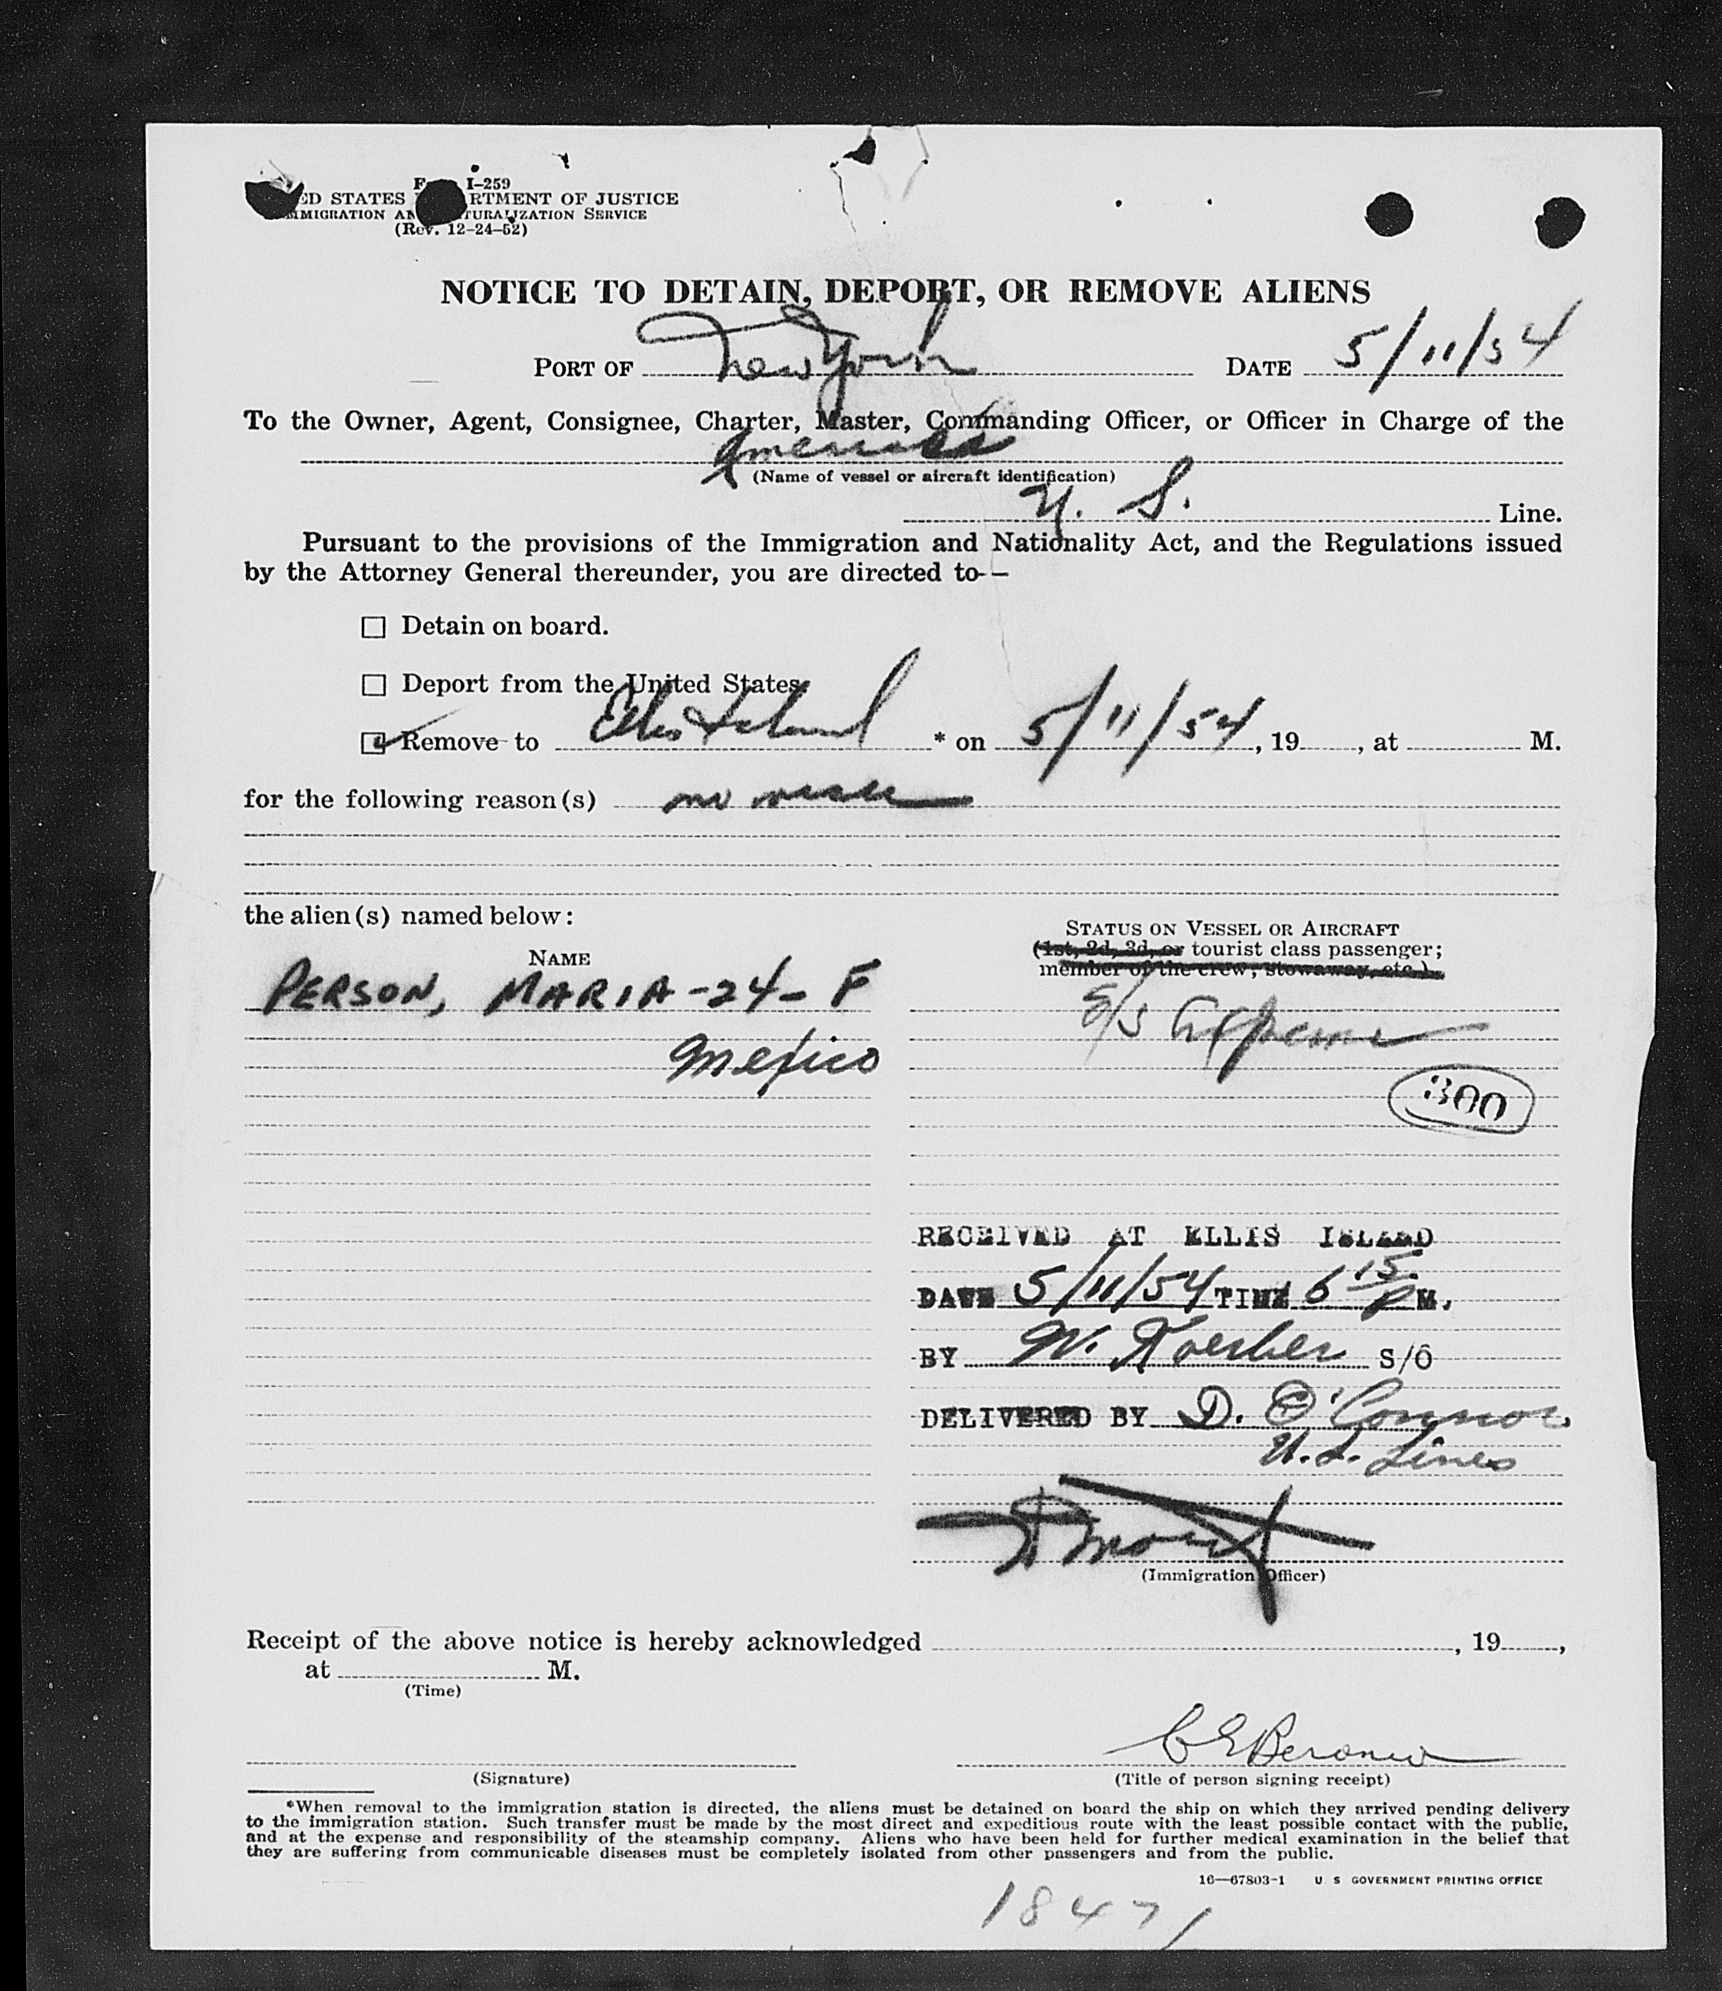 I-259
STATES DEPARTMENT OF JUSTICE
IMMIGRATION AND NATURALIZATION SERVICE
(Rev. 12-24-52)
NOTICE TO DETAIN, DEPORT, OR REMOVE ALIENS
PORT OF New York DATE 5/11/54
To the Owner, Agent, Consignee, Charter, Master, Commanding Officer, or Officer in Charge of the
America
(Name of vessel or aircraft identification)
U. S. Line.
Pursuant to the provisions of the Immigration and Nationality Act, and the Regulations issued
by the Attorney General thereunder, you are directed to—
Detain on board.
Deport from the United States
Remove to Ellis Island * on 5/11/54, 19, at M.
for the following reason(s) no visa
the alien(s) named below:
NAME
STATUS ON VESSEL OR AIRCRAFT
(1st, 2d, 3d, or tourist class passenger;
member of the crew, stowaway, etc.)
PERSON, MARIA-24-F
Mexico
300
RECEIVED AT ELLIS ISLAND
DATE 5/11/54 TIME 6 15 P M.
BY W. S/O
DELIVERED BY D. O'Connor
U.S. Lines
(Immigration Officer)
Receipt of the above notice is hereby acknowledged , 19 ,
at M.
(Time)
(Signature)
(Title of person signing receipt)
*When removal to the immigration station is directed, the aliens must be detained on board the ship on which they arrived pending delivery
to the immigration station. Such transfer must be made by the most direct and expeditious route with the least possible contact with the public,
and at the expense and responsibility of the steamship company. Aliens who have been held for further medical examination in the belief that
they are suffering from communicable diseases must be completely isolated from other passengers and from the public.
16—67803-1 U S GOVERNMENT PRINTING OFFICE
1847